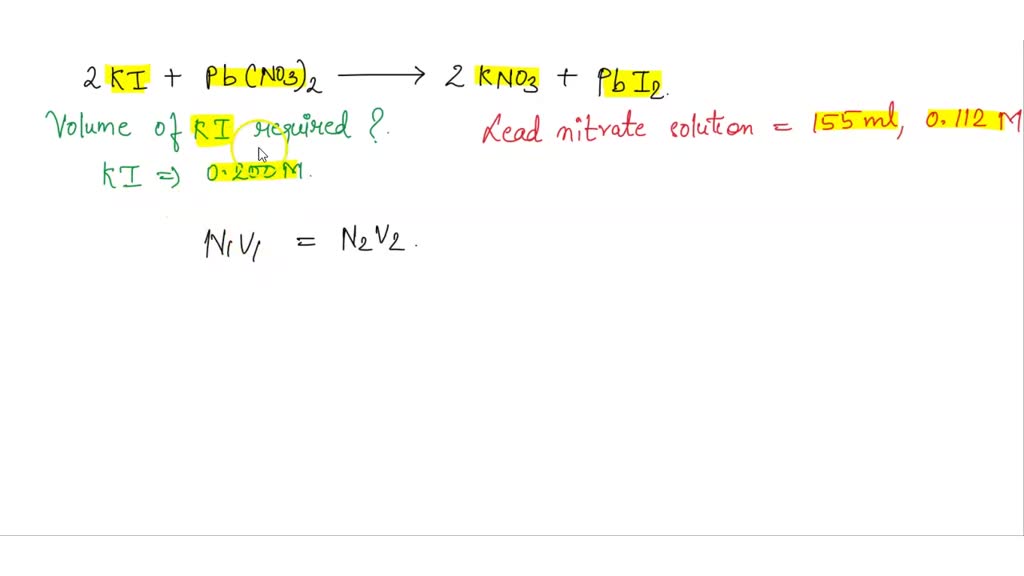 2 KI + Pb(NO3)2 ⟶ 2 KNO3 + PbI2.
Volume of KI required ? Lead nitrate solution = 155 ml, 0.112 M
KI ⇒ 0.200 M.
N1V1 = N2V2.